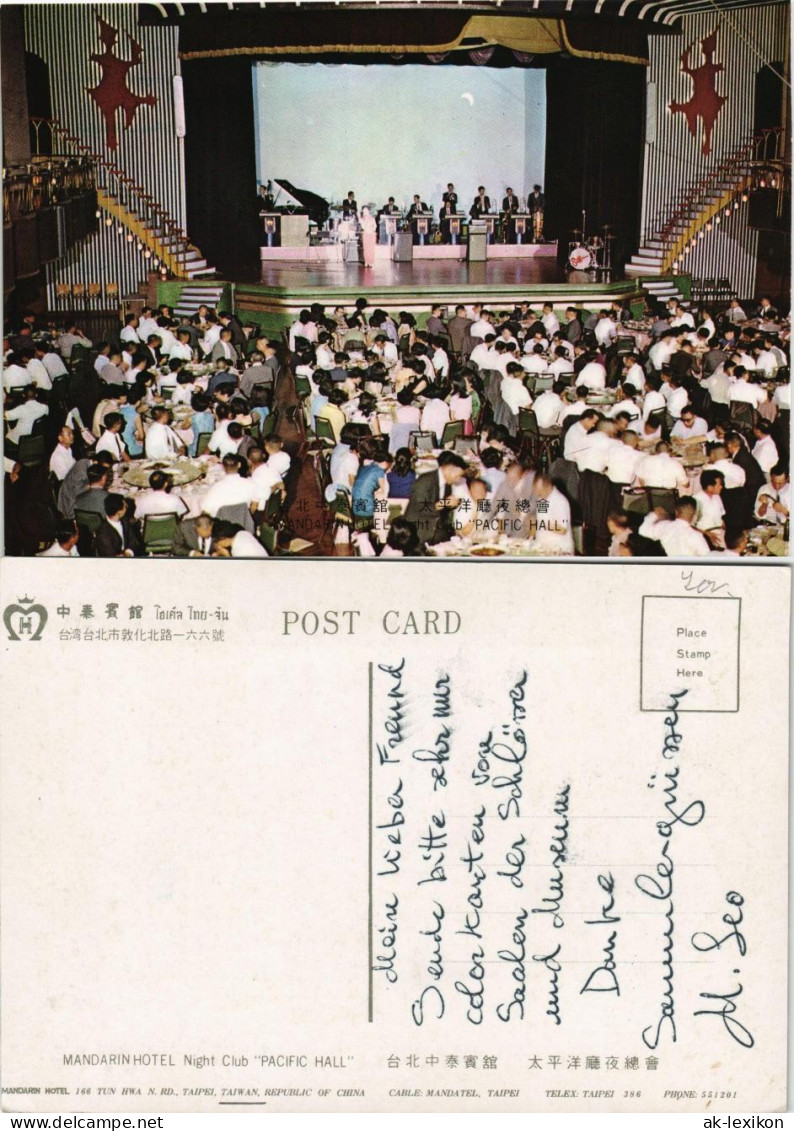 台北中泰賓館 太平洋廳夜總會
MANDARIN HOTEL Night Club "PACIFIC HALL"
中泰賓館 โฮเต็ล ไทย-จีน
台湾台北市敦化北路一六六號
POST CARD
Place
Stamp
Here
Mein lieber Freund
Sende bitte sehr nur
color karten von
Saalen der Schlösser
und Museum
Danke
Sammle-grüssen
M. Seo
MANDARIN HOTEL Night Club "PACIFIC HALL" 台北中泰賓館 太平洋廳夜總會
MANDARIN HOTEL 166 TUN HWA N. RD., TAIPEI, TAIWAN, REPUBLIC OF CHINA CABLE: MANDATEL, TAIPEI TELEX: TAIPEI 386 PHONE: 551201
© ak-lexikon.de
© ak-lexikon